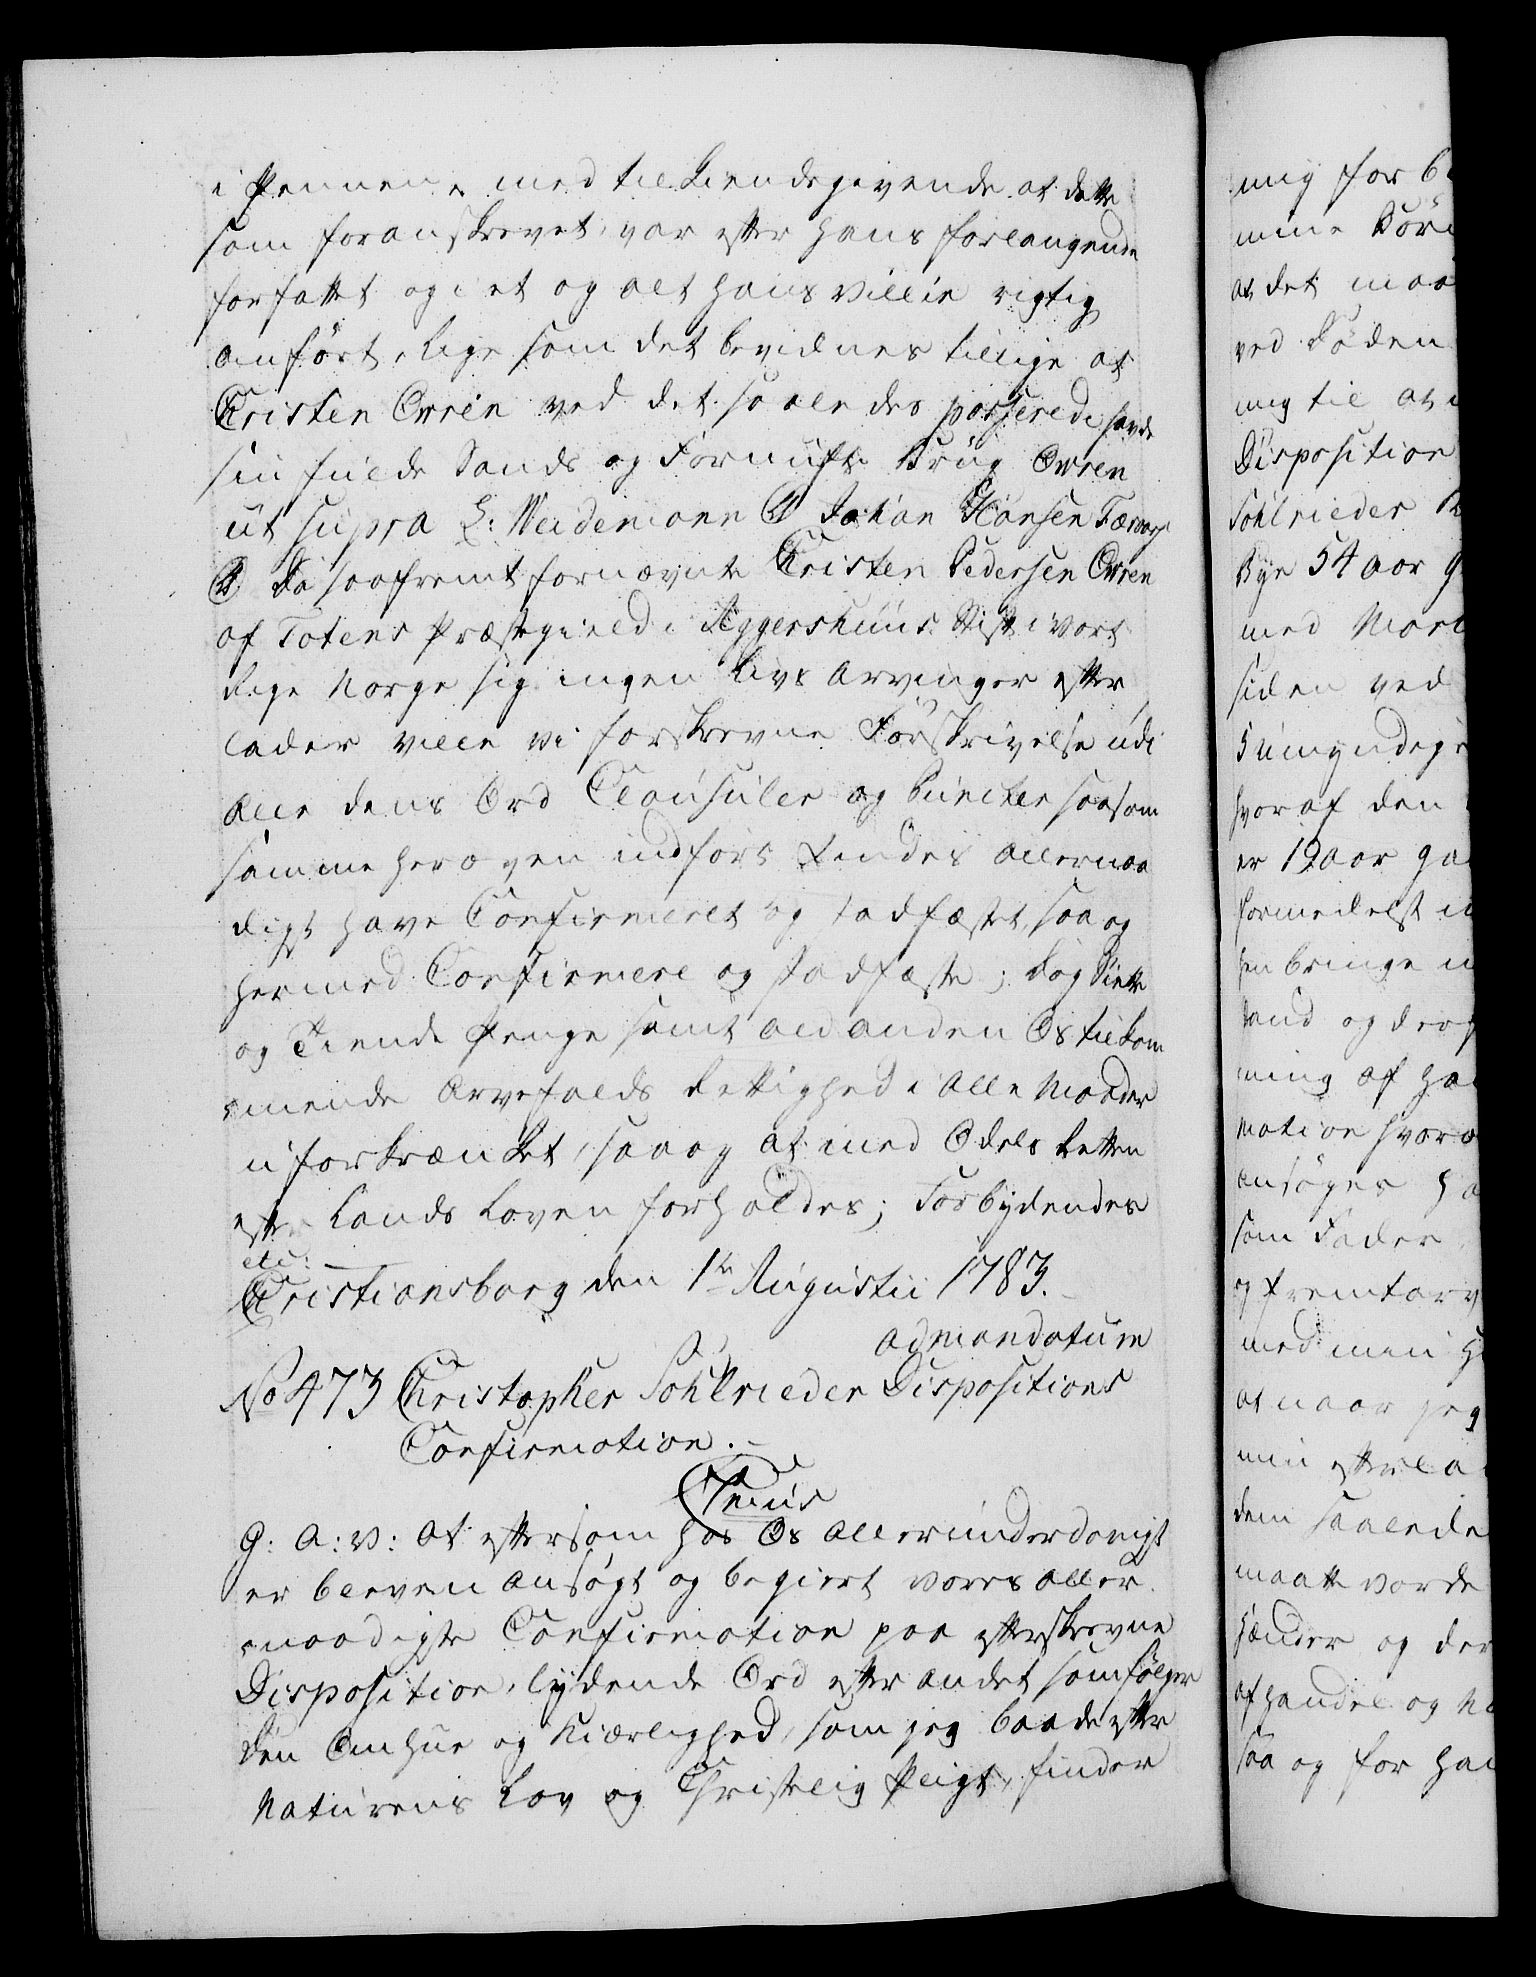 i Pennen, med tilkiendegivende at dette
som foranskrevet, var efter hans forlangende
forfattet og i et og alt hans villie rigtig
anført, lige som det bevidnes tillige at
Cristen Owren ved det saaledes passerede havde
sin fulde Sands og Fornufts Brug Owren
ut supra L: Weidemann Johan Hansen
Da saafremt fornævnte Cristen Pedersen Owren
af Totens Præstegield i Aggershuus Stift i vort
Rige Norge sig ingen Livs Arvinger efter
lader ville vi forskrevne Forskrivelse udi
alle dens Ord Clausuler og Puncter saasom
samme her oven indførs findes allernaa
digst have Confirmeret og stadfæstet, saa og
hermed Confirmere og stadfæste; dog Siette
og Tiende Penge samt al anden Os tilkom
mende Arvefalds Rettighed i Alle Maader
uforkrænket, saa og at med Odels Retten
efter Lands Loven forholdes; Forbydendes
etc:
Cristiansborg den 1te Augustii 1783.
ad mandatum
No 473 Christopher Sohlrieder Dispositions
Confirmation.
Tenus
G: A: V: At eftersom hos Os allerunderdanigst
er bleven ansøgt og begiert vores aller
naadigste Confirmation paa efterskrevne
Disposition, lydende Ord efter andet som følger
Den Omhue og Kiærlighed, som jeg baade efter
Naturens Lov og Christelig Pligt, finder
mig for
mine Børn
at det maa
ved Døden
mig til at
Disposition
Sohlrieder
Bye 54 aar
med
siden ved
5 umyndige
hvoraf den
er 19 aar
formedelst
bringe
og
ning af
mation hvor
ansøges
som Fader
og fremtarv
med min
at naar jeg
min efterla
dem saalede
maatte vorde
hænder og der
afhandel og
saa og for han